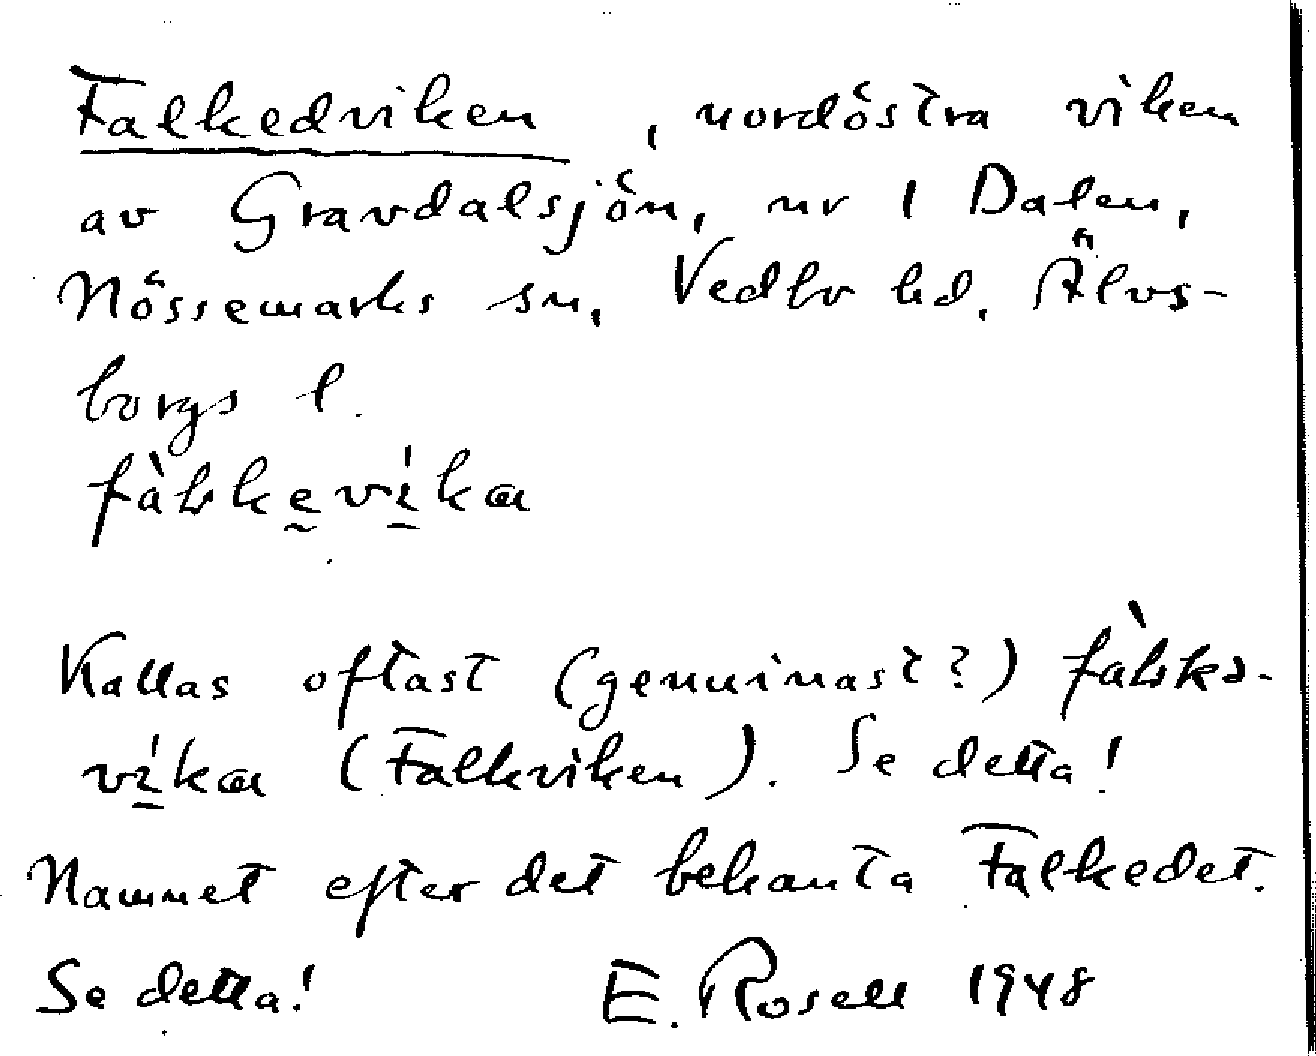 Falkedviken, nordöstra viken
av Gravdalsjön, nr 1 Dalen,
Nössemarks sn, Vedbo hd, Älvs-
borgs l.
Kallas oftast (genuinast?)
(Falkviken). Se detta!
Namnet efter det bekanta Falkedet.
Se detta! E. Rosell 1948